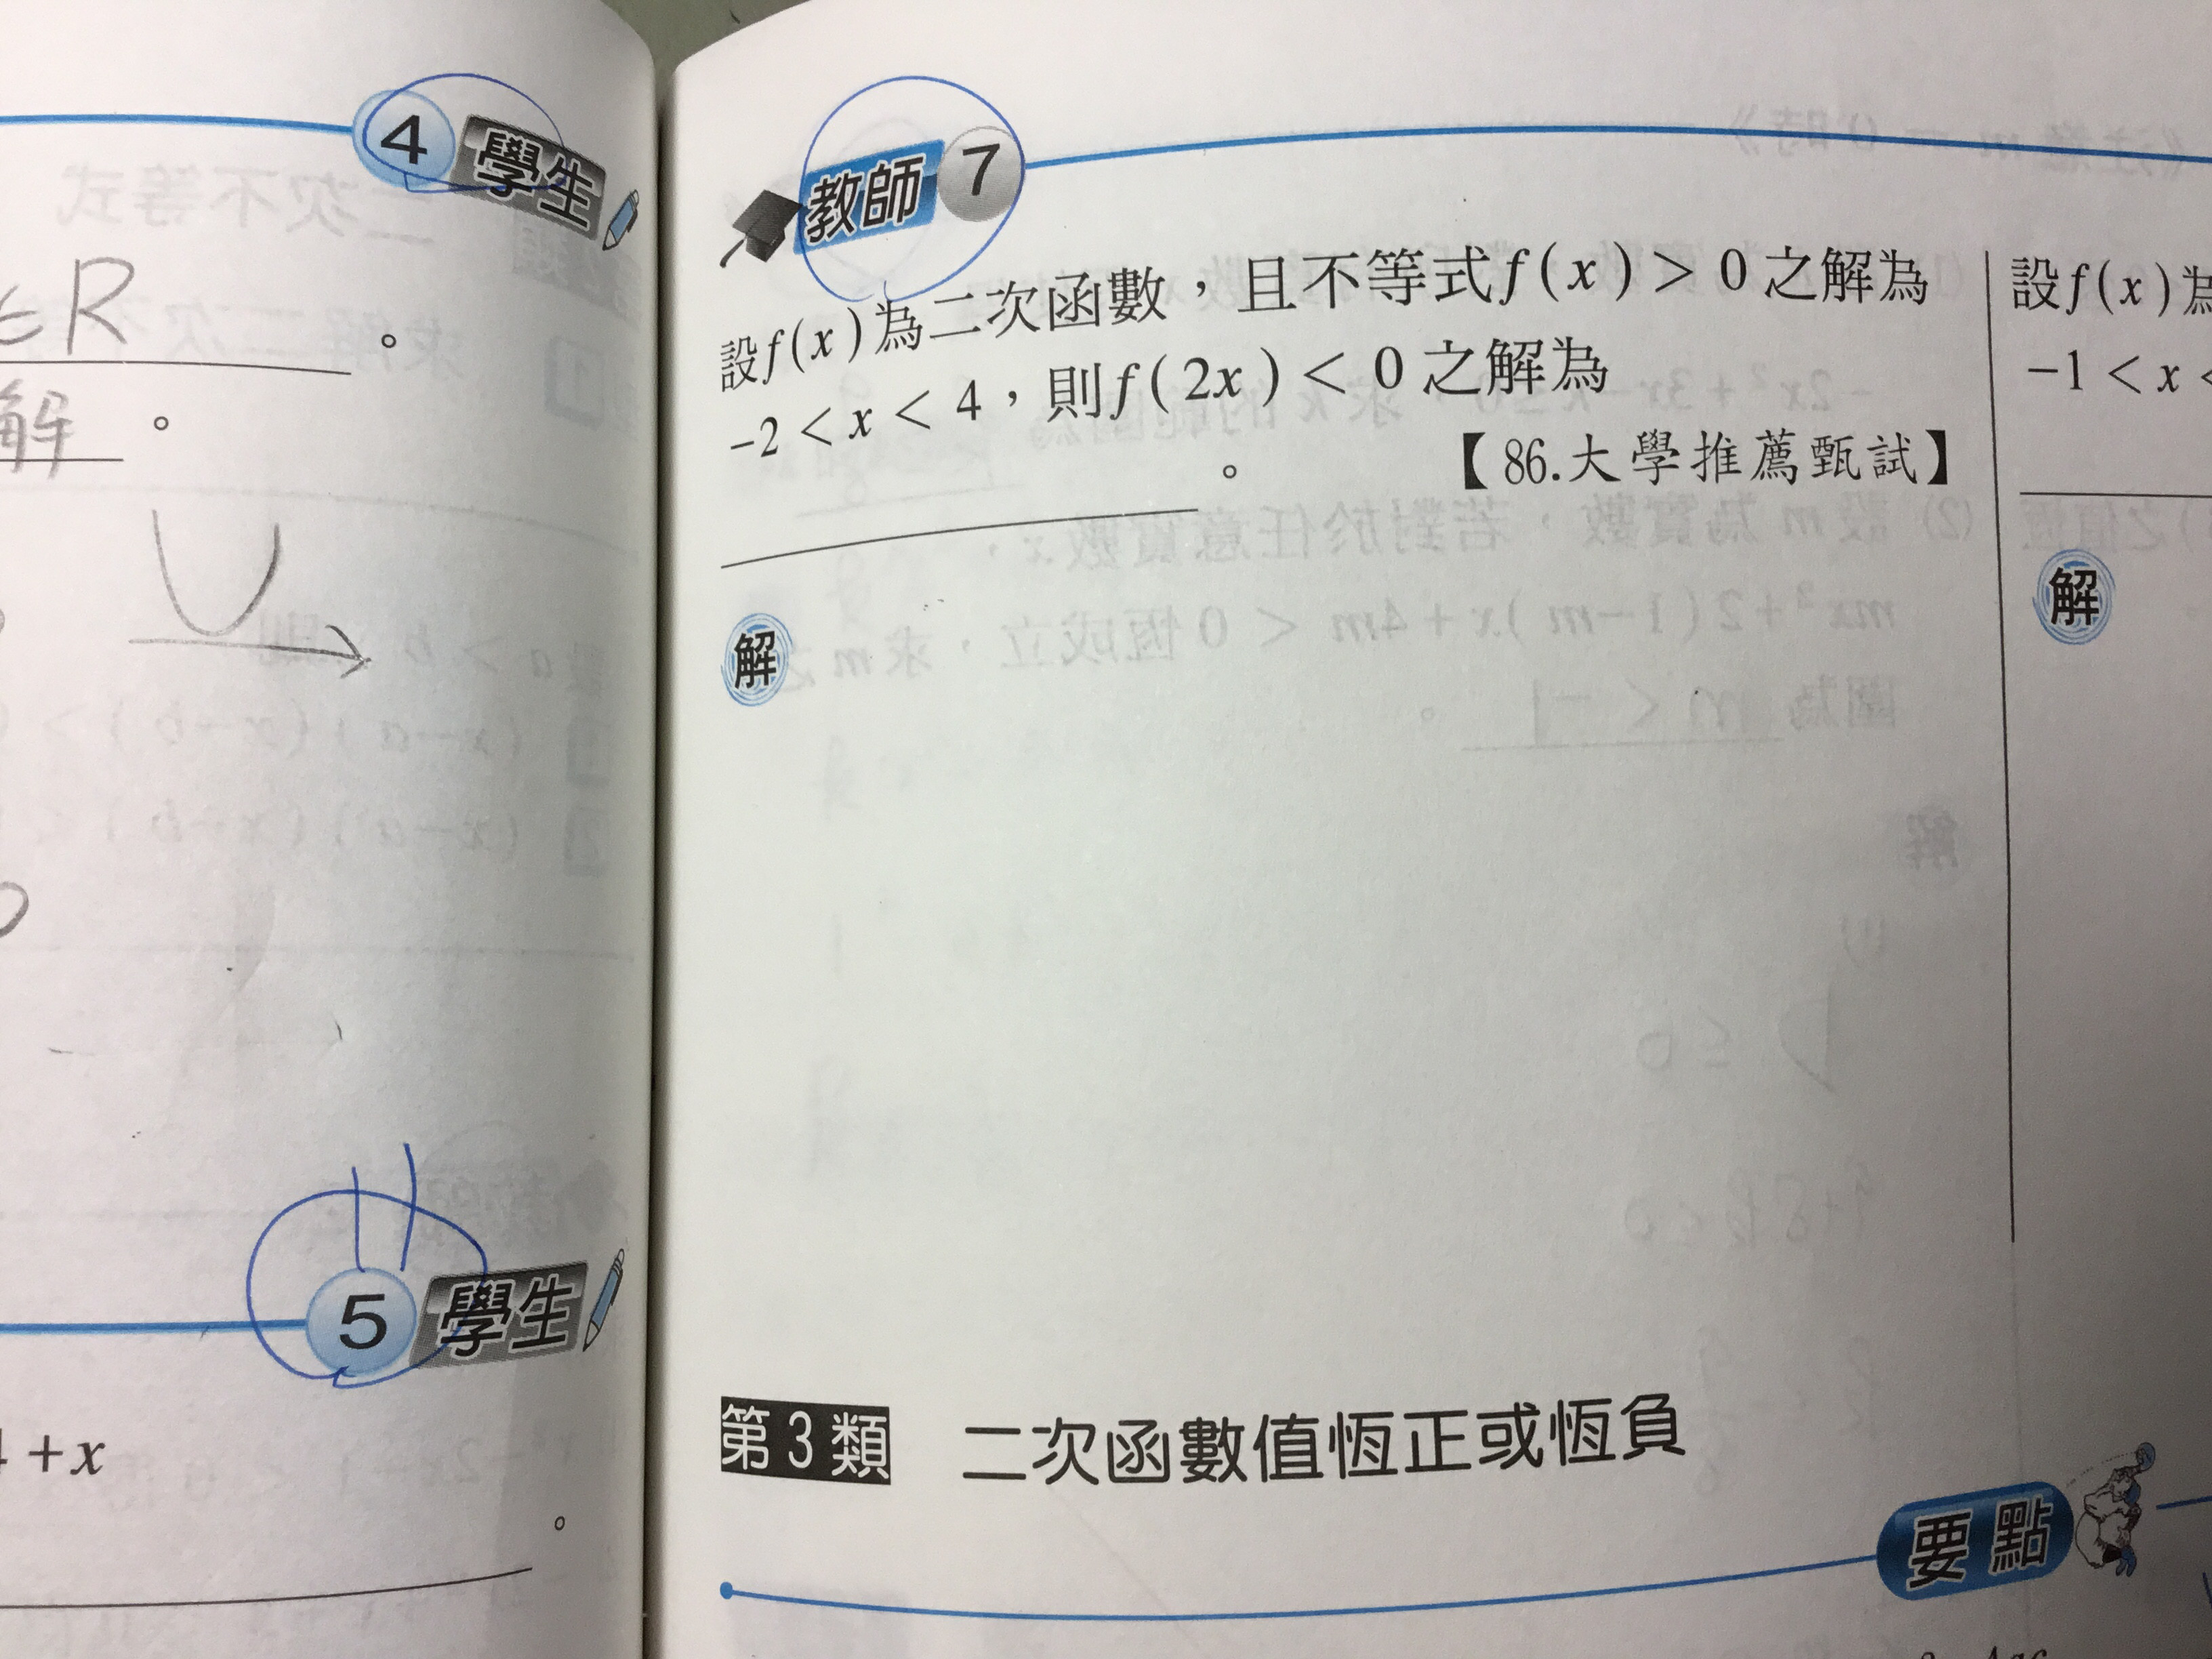 4 學生
∈R 。
解 。
5 學生
+x
。
教師 7
設f(x)為二次函數，且不等式f(x)>0之解為
-2<x<4，則f(2x)<0之解為
。 【86.大學推薦甄試】
解
第3類 二次函數值恆正或恆負
要點
設f(x)為
-1<x<
解